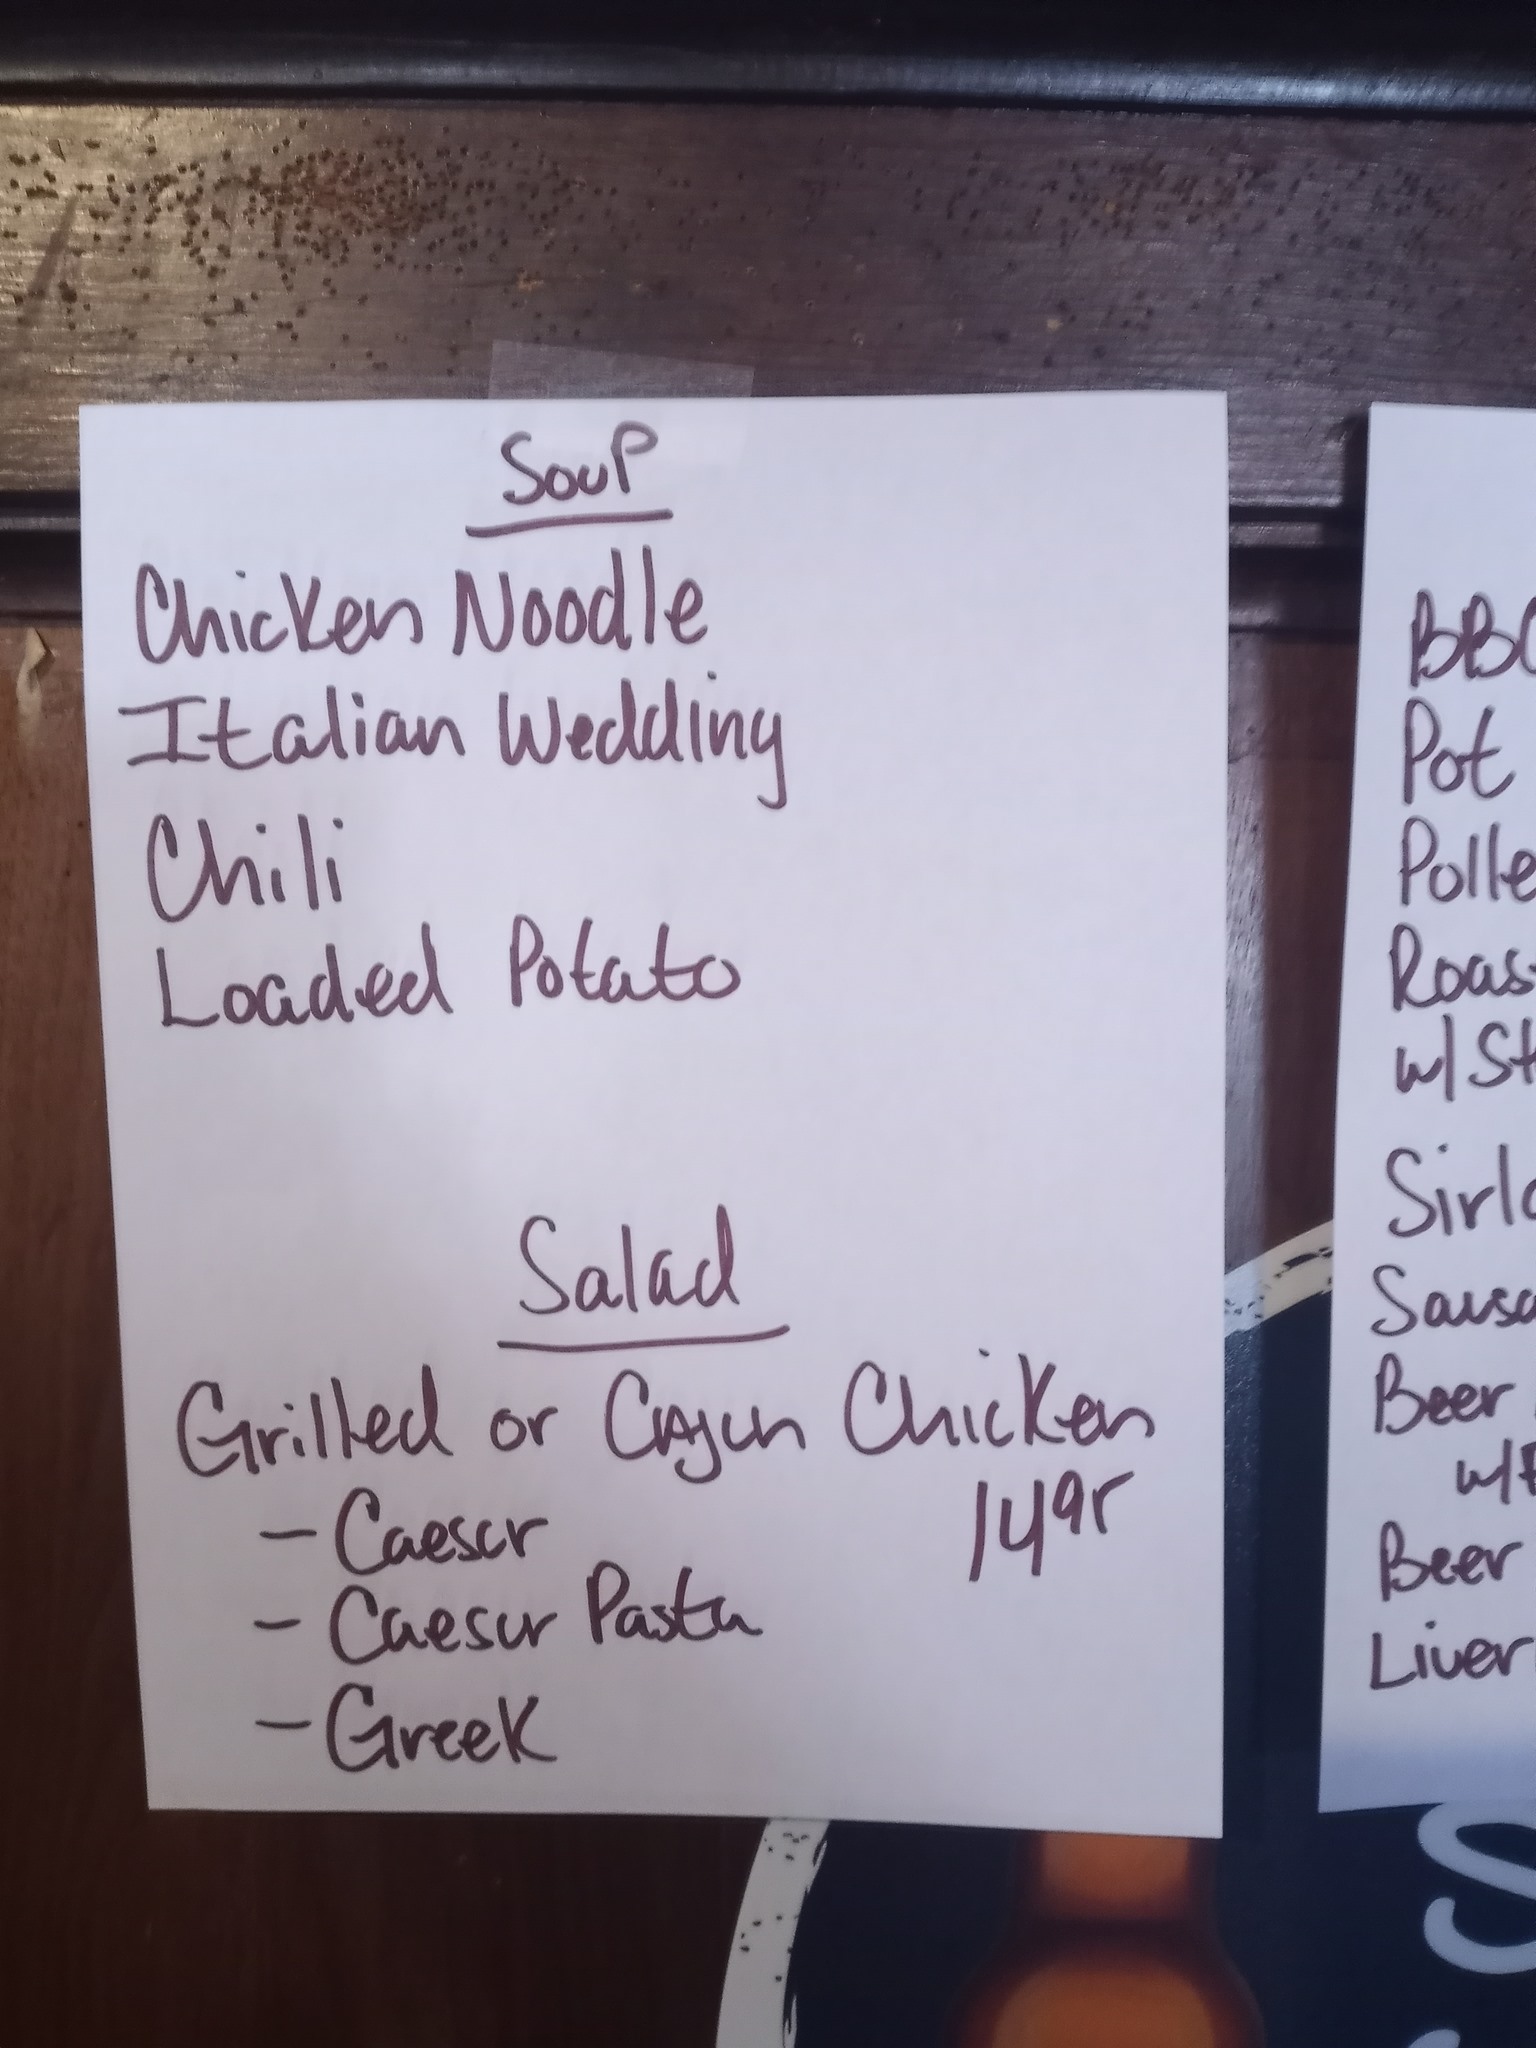 Soup
Chicken Noodle
Italian Wedding
Chili
Loaded Potato
Salad
Grilled or Cajun Chicken
- Caesar
1495
- Caesar Pasta
- Greek
BBQ
Pot
Polle
Roas
w/ St
Sirlo
Sausa
Beer
w/
Beer
Liver